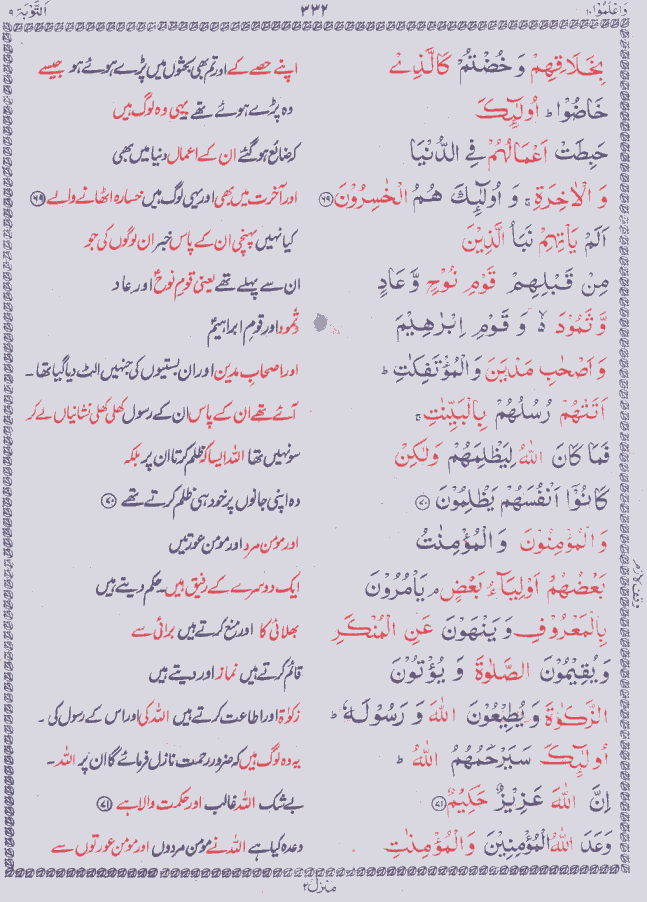 وَاعْلَمُوْۤا ۱۰ ۳۳۲ اَلتَّوْبَة ۹
بِخَلَاقِهِمْ وَ خُضْتُمْ كَالَّذِيْ اپنے حصے کے اور تم بھی بحثوں میں پڑے ہوئے ہو جیسے
خَاضُوْا ؕ اُولٰٓئِكَ وہ پڑے ہوئے تھے یہی وہ لوگ ہیں
حَبِطَتْ اَعْمَالُهُمْ فِي الدُّنْيَا کہ ضائع ہوگئے ان کے اعمال دنیا میں بھی
وَ الْاٰخِرَةِ ۚ وَ اُولٰٓئِكَ هُمُ الْخٰسِرُوْنَ ﴿۶۹﴾ اور آخرت میں بھی اور یہی لوگ ہیں خسارہ اٹھانے والے ﴿۶۹﴾
اَلَمْ يَاْتِهِمْ نَبَاُ الَّذِيْنَ کیا نہیں پہنچی ان کے پاس خبر ان لوگوں کی جو
مِنْ قَبْلِهِمْ قَوْمِ نُوْحٍ وَّ عَادٍ ان سے پہلے تھے یعنی قوم نوحؑ اور عاد
وَّ ثَمُوْدَ ۙ۬ وَ قَوْمِ اِبْرٰهِيْمَ ثمود اور قوم ابراہیمؑ
وَ اَصْحٰبِ مَدْيَنَ وَ الْمُؤْتَفِكٰتِ ؕ اور اصحاب مدین اور ان بستیوں کی جنہیں الٹ دیا گیا تھا۔
اَتَتْهُمْ رُسُلُهُمْ بِالْبَيِّنٰتِ ۚ آئے تھے ان کے پاس ان کے رسول کھلی کھلی نشانیاں لے کر
فَمَا كَانَ اللّٰهُ لِيَظْلِمَهُمْ وَلٰكِنْ سو نہیں تھا اللہ ایسا کہ ظلم کرتا ان پر بلکہ
كَانُوْۤا اَنْفُسَهُمْ يَظْلِمُوْنَ ﴿۷۰﴾ وہ اپنی جانوں پر خود ہی ظلم کرتے تھے ﴿۷۰﴾
وَ الْمُؤْمِنُوْنَ وَ الْمُؤْمِنٰتُ اور مومن مرد اور مومن عورتیں
بَعْضُهُمْ اَوْلِيَآءُ بَعْضٍ ۘ يَاْمُرُوْنَ ایک دوسرے کے رفیق ہیں۔ حکم دیتے ہیں
وقف لازم
بِالْمَعْرُوْفِ وَ يَنْهَوْنَ عَنِ الْمُنْكَرِ بھلائی کا اور منع کرتے ہیں برائی سے
وَ يُقِيْمُوْنَ الصَّلٰوةَ وَ يُؤْتُوْنَ قائم کرتے ہیں نماز اور دیتے ہیں
الزَّكٰوةَ وَ يُطِيْعُوْنَ اللّٰهَ وَ رَسُوْلَهٗ ؕ زکوٰۃ اور اطاعت کرتے ہیں اللہ کی اور اس کے رسول کی۔
اُولٰٓئِكَ سَيَرْحَمُهُمُ اللّٰهُ ؕ یہ وہ لوگ ہیں کہ ضرور رحمت نازل فرمائے گا ان پر اللہ۔
اِنَّ اللّٰهَ عَزِيْزٌ حَكِيْمٌ ﴿۷۱﴾ بے شک اللہ غالب اور حکمت والا ہے ﴿۷۱﴾
وَعَدَ اللّٰهُ الْمُؤْمِنِيْنَ وَ الْمُؤْمِنٰتِ وعدہ کیا ہے اللہ نے مومن مردوں اور مومن عورتوں سے
منزل ۲